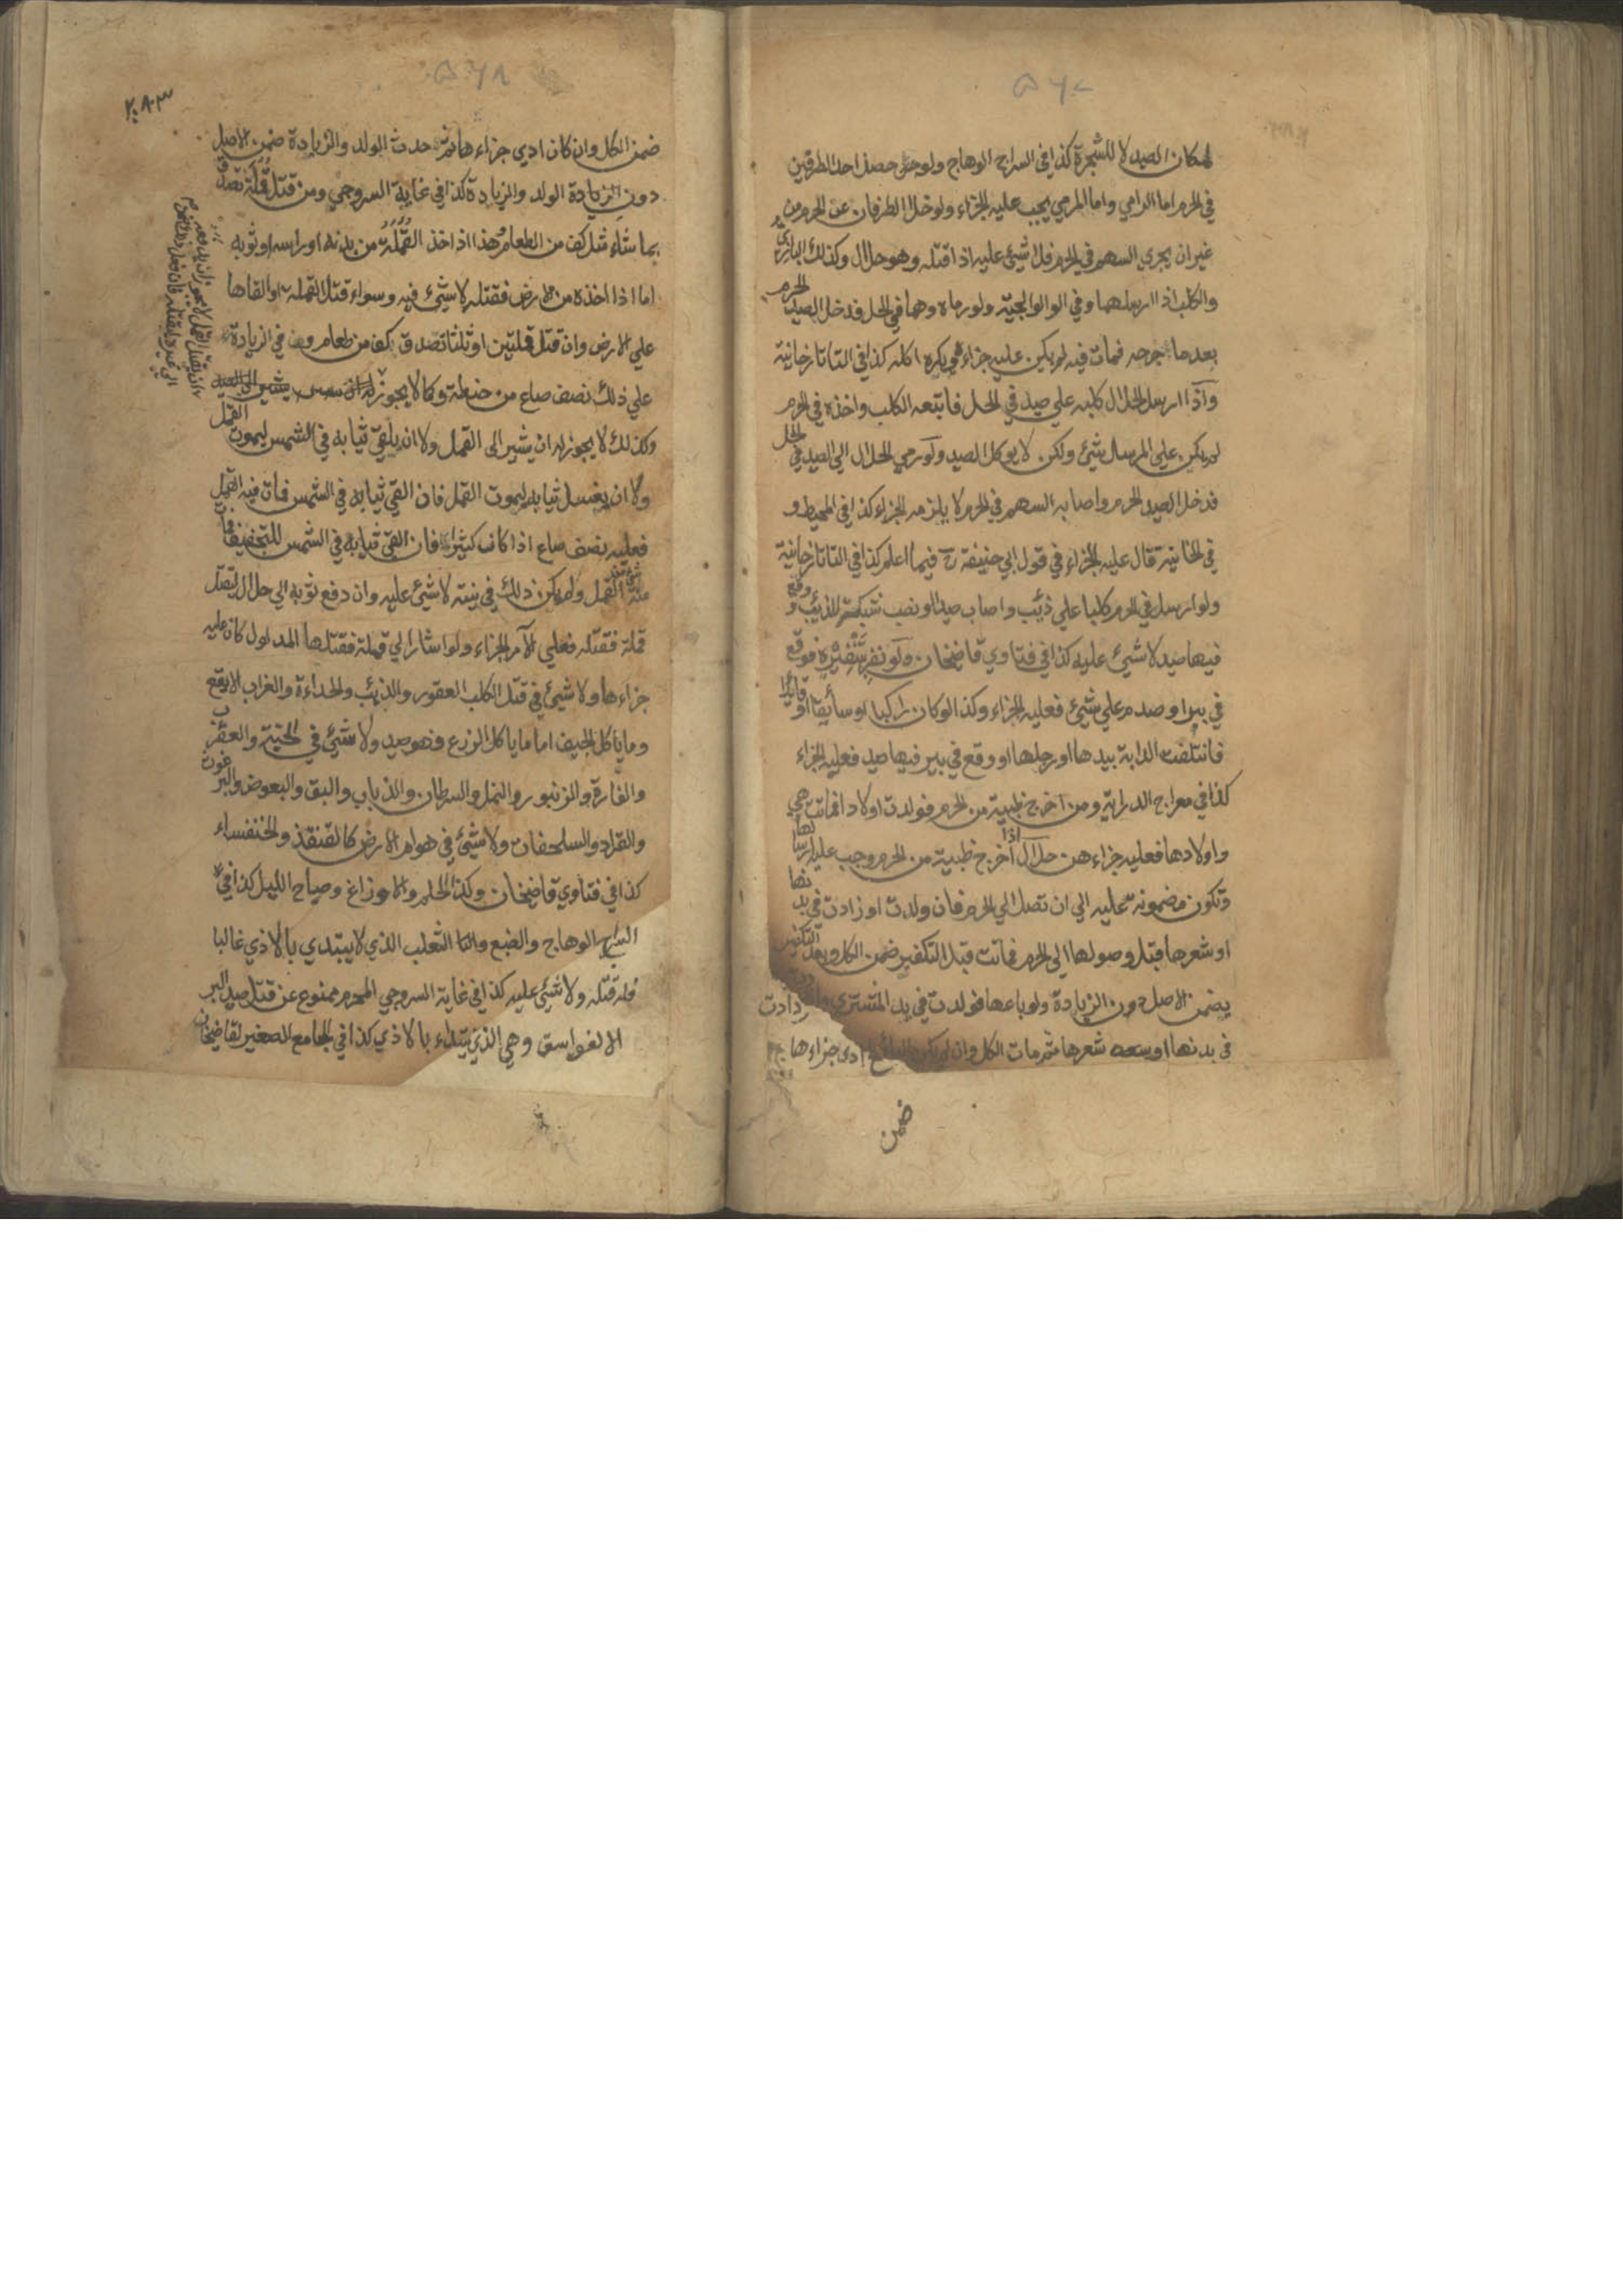 ۵۶۷
لمكان الصيد لا للشجرة كذا في السراج الوهاج ولو حصل احد الطرفين
في الحرم اما الرامي واما المرمي يجب عليه الجزاء ولو خلا الطرفان عن الحرم من
غير ان يجري السهم في الحرم فلا شيئ عليه اذا قتله وهو حلال وكذلك البازي
والكلب اذا ارسلهما وفي الولوالجية ولو رماه وهما في الحل فدخل الصيد الحرم
بعد ما جرحه فمات فيه لم يكن عليه جزاء ويكره اكله كذا في التاتارخانية
واذا ارسل الحلال كلبه علي صيد في الحل فاتبعه الكلب واخذه في الحرم
لم يكن علي المرسل شيئ ولكن لا يوكل الصيد ولو رمي الحلال الي الصيد في الحل
فدخل الصيد الحرم واصابه السهم في الحرم لا يلزمه الجزاء كذا في المحيط و
في الخانية قال عليه الجزاء في قول ابي حنيفة رح فيما اعلم كذا في التاتارخانية
ولو ارسل في الحرم كلبا علي ذئب واصاب صيدا او نصب شبكة للذئب و وقع
فيها صيد لا شيئ عليه كذا في فتاوي قاضيخان ولو نفر بتنفيره فوقع
في بير او صدم علي شيئ فعليه الجزاء وكذا لو كان راكبا او سائقا او قائدا
فاتلفت الدابة بيدها او رجلها او وقع في بير فيها صيد فعليه الجزاء
كذا في معراج الدراية ومن اخرج ظبية من الحرم فولدت اولادا فماتت هي
واولادها فعليه جزاءهن حلال اذا اخرج ظبية من الحرم وجب عليه ارسالها
وتكون مضمونة عليه الي ان تصل الي الحرم فان ولدت او زادت في بدنها
او شعرها قبل وصولها الي الحرم فماتت قبل التكفير ضمن الكل وبعد التكفير
يضمن الاصل دون الزيادة ولو باعها فولدت في يد المشتري وازدادت
في بدنها او شعرها ثم مات الكل وان لم يكن البائع ادي جزاءها
ضمن
۵۶۸
٢٨٣
ضمن الكل وان كان ادي جزاءها ثم حدث الولد والزيادة ضمن الاصل
دون الزيادة الولد والزيادة كذا في غاية السروجي ومن قتل قملة تصدق
بما شاء مثل كف من الطعام هذا اذا اخذ القملة من بدنه او راسه او ثوبه
اما اذا اخذه من الارض فقتله لا شيئ فيه وسواء قتل القملة او القاها
علي الارض وان قتل قملتين او ثلثا تصدق بكف من طعام وفي الزيادة
علي ذلك نصف صاع من حنطة وكما لا يجوز له ان يشير الي الصيد
وكذلك لا يجوز له ان يشير الي القمل ولا ان يلقي ثيابه في الشمس ليموت القمل
ولا ان يغسل ثيابه ليموت القمل فان القي ثيابه في الشمس فمات فيه القمل
فعليه نصف صاع اذا كان كثيرا فان القي ثيابه في الشمس للتجفيف فمات
منه القمل ولم يكن ذلك في نيته لا شيئ عليه وان دفع ثوبه الي حلال ليقتل
قملة فقتله فعلي الآمر الجزاء ولو اشار الي قملة فقتلها المدلول كان عليه
جزاءها ولا شيئ في قتل الكلب العقور والذئب والحداءة والغراب الابقع
وما يأكل الجيف اما ما ياكل الزرع فهو صيد ولا شيئ في الحية والعقرب
والفارة والزنبور والنمل والسرطان والذباب والبق والبعوض والبرغوث
والقراد والسلحفات ولا شيئ في هوام الارض كالقنفذ والخنفساء
كذا في فتاوي قاضيخان وكذا الحلم والاوزاغ وصياح الليل كذا في
السراج الوهاج والضبع والثعلب الذي لا يبتدي بالاذي غالبا
فله قتله ولا شيئ عليه كذا في غاية السروجي المحرم ممنوع عن قتل صيد البر
الا الفواسق وهي الذي يبتداء بالاذي كذا في الجامع الصغير لقاضيخان
ان يقتل القمل لا يجوز ان يدفعه
الي غيره ليقتله فان فعل ذلك ضمن